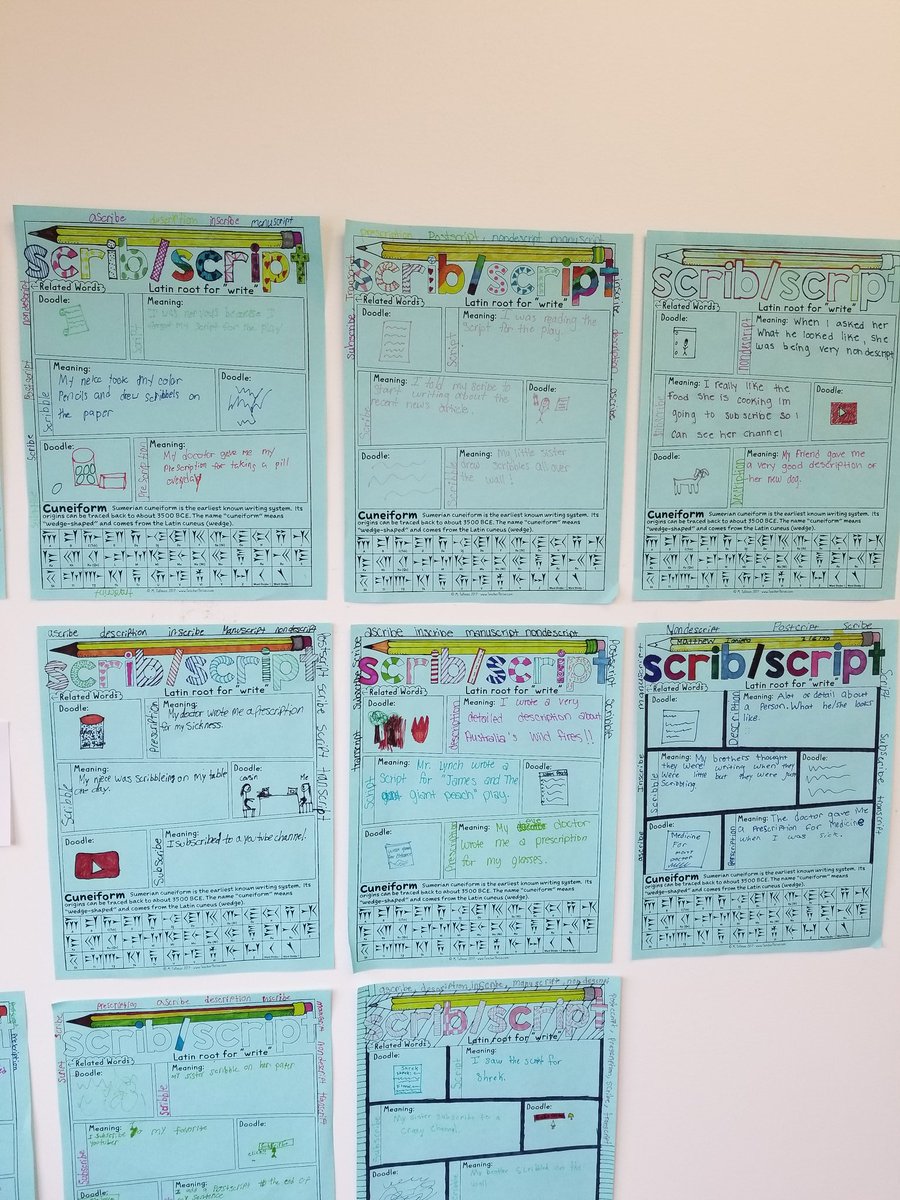 ascribe description inscribe manuscript
scrib/script
Related Words
Latin root for "write"
Doodle:
Meaning:
I was nervous because I
forgot my script for the play
Script
nondescript
Postscript
Scribe
Meaning:
Doodle:
Scribble
My neice took my color
Pencils and drew scribbels on
the paper
Doodle:
Meaning:
Prescription
My doctor gave me my
Prescription for taking a pill
Cuneiform Sumerian cuneiform is the earliest known writing system. Its
origins can be traced back to about 3500 BCE. The name "cuneiform" means
"wedge-shaped" and comes from the Latin cuneus (wedge).
prescription Postscript, nondescript manuscript
scrib/script
Related Words
Latin root for "write"
Doodle:
Meaning:
Script
I was reading the
Script for the play.
Subscribe
description
ascribe
Meaning:
Doodle:
Scribe
I told my scribe to
Start writing about the
recent news article.
Doodle:
Meaning:
Scribble
My little sister
drew scribbles all over
the wall!
Cuneiform Sumerian cuneiform is the earliest known writing system. Its
origins can be traced back to about 3500 BCE. The name "cuneiform" means
"wedge-shaped" and comes from the Latin cuneus (wedge).
scrib/script
Related Words
Latin root for "write"
Doodle:
Meaning: When I asked her
What he looked like, she
was being very nondescript
nondescript
Meaning: I really like the
food she is cooking Im
going to subscribe so I
can see her channel
Doodle:
Doodle:
Meaning: My friend gave me
a very good description of
her new dog.
Description
Cuneiform Sumerian cuneiform is the earliest known writing system. Its
origins can be traced back to about 3500 BCE. The name "cuneiform" means
"wedge-shaped" and comes from the Latin cuneus (wedge).
ascribe description inscribe Manuscript nondescript
scrib/script
Related Words
Latin root for "write"
Doodle:
Meaning:
Prescription
My doctor wrote me a Prescription
for my Sickness.
Meaning:
Doodle:
Scribble
My niece was Scribbleing on my table
one day.
Me
Doodle:
Meaning:
Subscribe
I subscribed to a youtube channel.
Cuneiform Sumerian cuneiform is the earliest known writing system. Its
origins can be traced back to about 3500 BCE. The name "cuneiform" means
"wedge-shaped" and comes from the Latin cuneus (wedge).
ascribe inscribe manuscript nondescript
scrib/script
Related Words
Latin root for "write"
Doodle:
Meaning: I wrote a very
detailed description about
Australia's Wild fires!!
description
Subscribe
transcript
Scribble
Meaning: Mr. Lynch wrote a
Script for "James and The
giant peach" play.
Script
Doodle:
Doodle:
Meaning: My doctor
wrote me a prescription
for my glasses.
Prescription
Cuneiform Sumerian cuneiform is the earliest known writing system. Its
origins can be traced back to about 3500 BCE. The name "cuneiform" means
"wedge-shaped" and comes from the Latin cuneus (wedge).
Nondescript Postcript scribe
Matthew
scrib/script
Related Words
Latin root for "write"
Doodle:
Meaning: Alot of detail about
a Person. What he/she looks
like.
Description
manuscript
Inscribe
ascribe
Script
subscribe
transcript
Meaning: My brothers thought
they were writing when they
Were little but they were just
Scribbling.
Scribble
Doodle:
Doodle:
Medicine
For
Meaning: The doctor gave me
a Prescription for Medicine
when I was sick.
Prescription
Cuneiform Sumerian cuneiform is the earliest known writing system. Its
origins can be traced back to about 3500 BCE. The name "cuneiform" means
"wedge-shaped" and comes from the Latin cuneus (wedge).
Prescription ascribe description inscribe
scrib/script
Related Words
Latin root for "write"
Doodle:
Meaning:
My sister scribble on her paper
Scribble
Scribe
Script
manuscript
nondescript
transcript
Meaning:
I subscribe to my favorite
youtuber
Subscribe
Doodle:
Doodle:
Meaning:
I add a Postscript the end of
ascribe, description, inscribe, manuscript, nondescript
scrib/script
Related Words
Latin root for "write"
Doodle:
Shrek
Meaning:
Script
I saw the script for
Shrek.
Meaning:
Doodle:
Subscribe
My sister subscribe to a
crazy channel.
Doodle:
Meaning:
My brother scribbled on the
wall